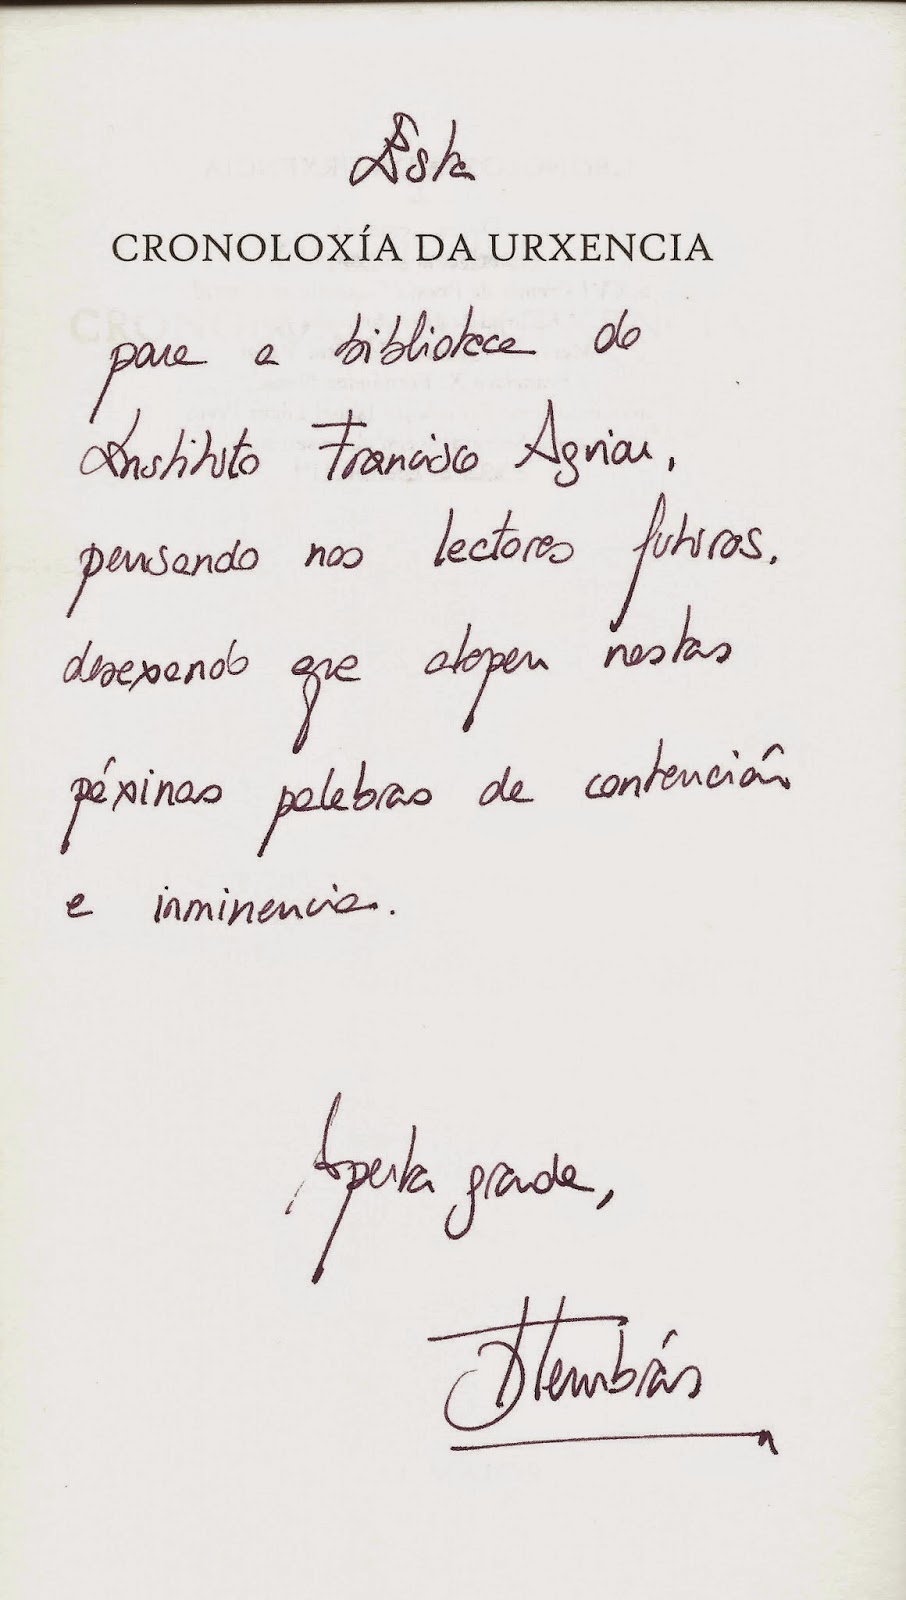 Esta
CRONOLOXÍA DA URXENCIA
para a biblioteca do
Instituto Francisco Aguiar,
pensando nos lectores futuros,
desexando que atopen nestas
páxinas palabras de contención
e inminencia.
Aperta grande,